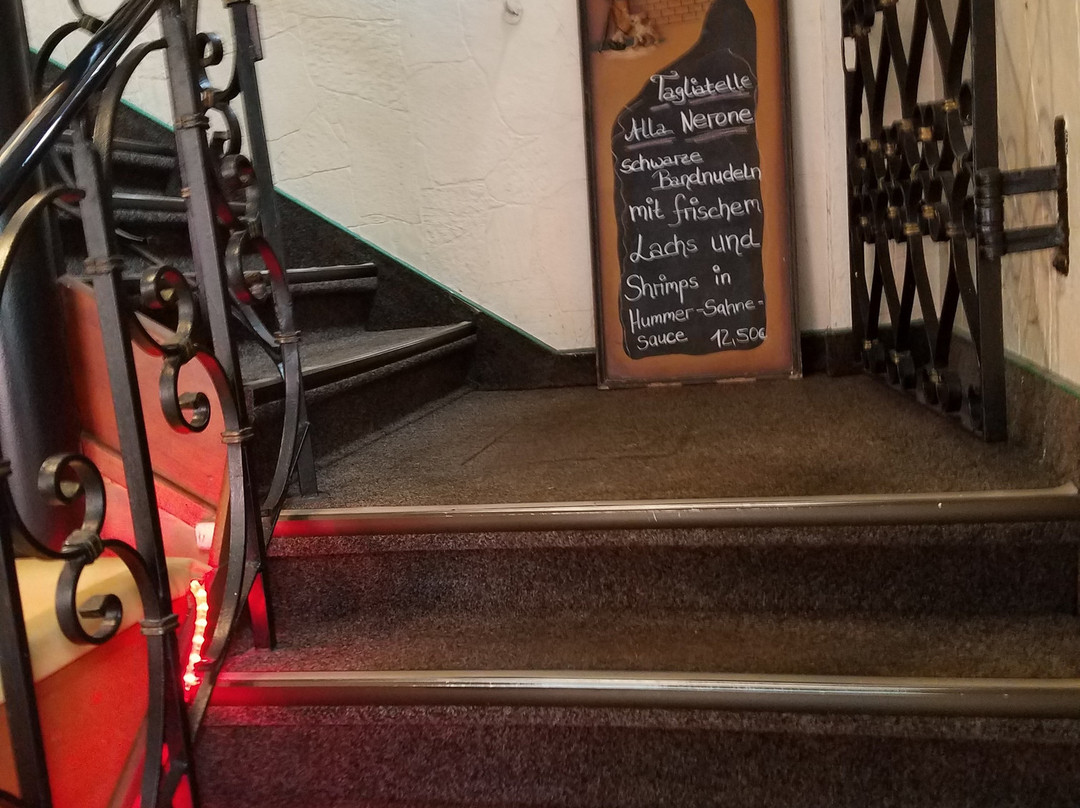 Tagliatelle
Alla Nerone
schwarze
Bandnudeln
mit frischem
Lachs und
Shrimps in
Hummer-Sahne-
sauce 12,50€